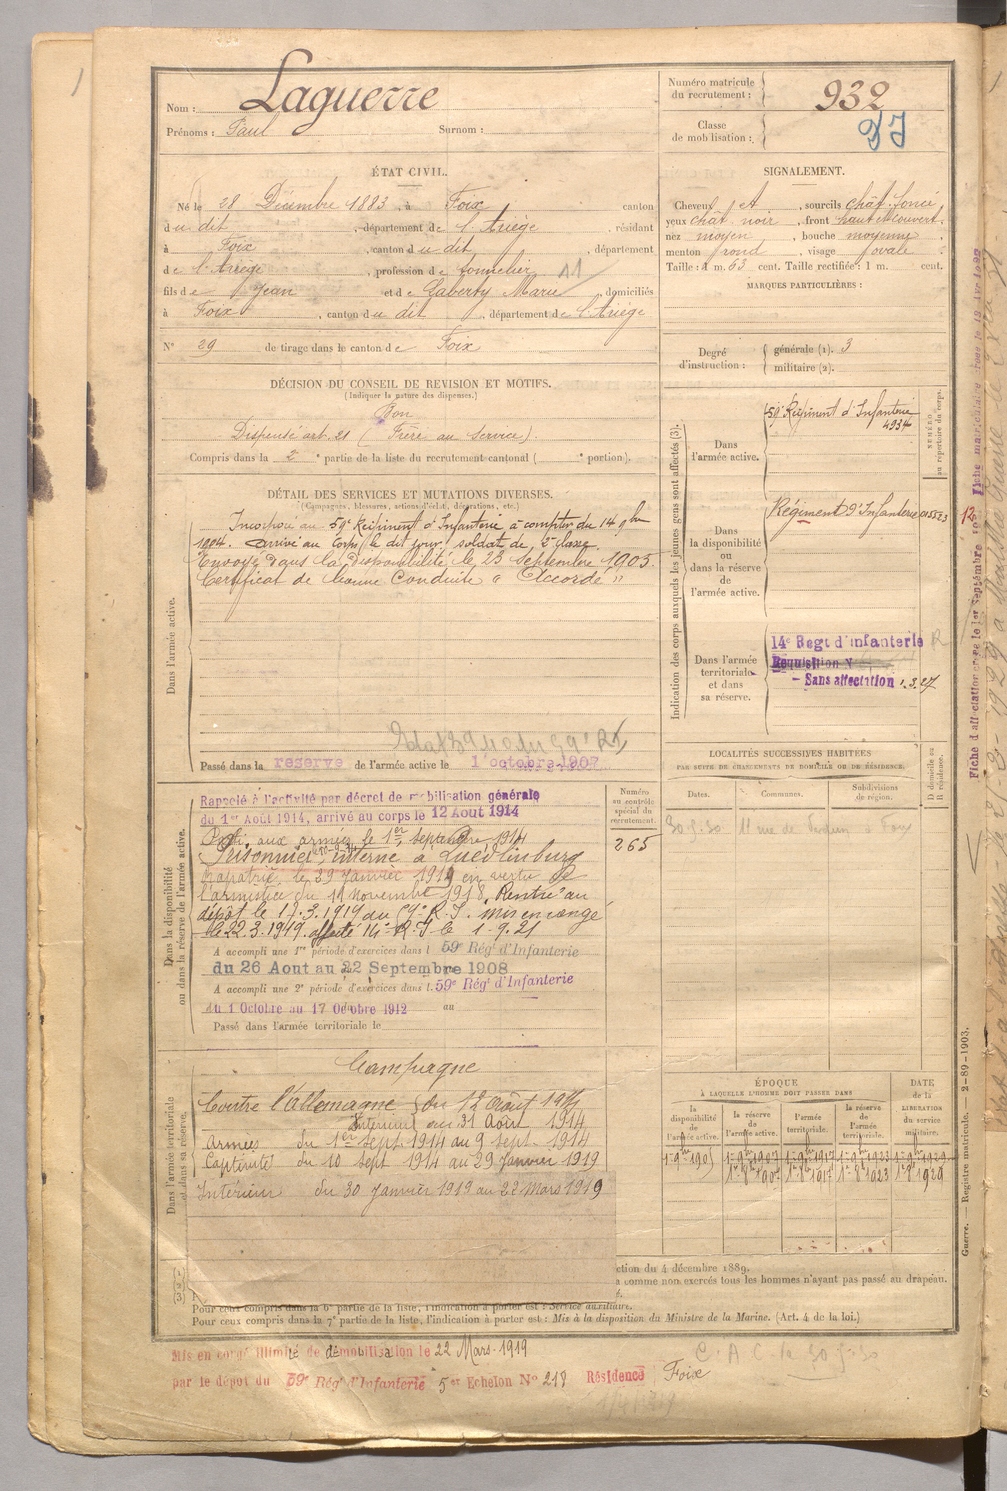 Nom : Laguerre
Prénoms : Paul Surnom :
Numéro matricule du recrutement : 932
Classe de mobilisation :
ÉTAT CIVIL.
Né le 28 Décembre 1883, à Foix canton
du dit, département de l'Ariège, résidant
à Foix, canton du dit, département
de l'Ariège, profession de tonnelier 11
fils de Jean et de Gaberty Marie, domiciliés
à Foix, canton du dit, département de l'Ariège
N° 29 de tirage dans le canton de Foix
SIGNALEMENT.
Cheveux et, sourcils chât. foncé
yeux chât. noir, front haut et couvert.
nez moyen, bouche moyenne
menton rond, visage ovale.
Taille : 1 m. 63 cent. Taille rectifiée : 1 m. cent.
MARQUES PARTICULIÈRES :
Degré d'instruction :
générale (1). 3
militaire (2).
DÉCISION DU CONSEIL DE REVISION ET MOTIFS.
(Indiquer la nature des dispenses.)
Bon
Dispensé art. 21 (Frère au service).
Compris dans la 2e partie de la liste du recrutement cantonal ( e portion).
DÉTAIL DES SERVICES ET MUTATIONS DIVERSES.
(Campagnes, blessures, actions d'éclat, décorations, etc.)
Dans l'armée active.
Incorporé au 59e Régiment d'Infanterie à compter du 14 9bre
1904. Arrivé au Corps le dit jour, soldat de 2e classe.
Envoyé dans la Disponibilité le 23 Septembre 1905.
Certificat de bonne Conduite "Accordé"
Passé dans la réserve de l'armée active le 1 octobre 1907
Indication des corps auxquels les jeunes gens sont affectés (3).
NUMÉRO au répertoire du corps.
Dans l'armée active.
59e Régiment d'Infanterie
4934
Dans la disponibilité ou dans la réserve de l'armée active.
Régiment d'Infanterie
Dans l'armée territoriale et dans sa réserve.
14e Regt d'infanterie
Requisition
- Sans affectation 1.3.27
LOCALITÉS SUCCESSIVES HABITÉES
PAR SUITE DE CHANGEMENTS DE DOMICILE OU DE RÉSIDENCE.
Dates. Communes. Subdivisions de région. D domicile ou R résidence.
30.5.30 11 rue de Verdun à Foix
Dans la disponibilité ou dans la réserve de l'armée active.
Numéro au contrôle spécial du recrutement.
265
Rappelé à l'activité par décret de mobilisation générale
du 1er Août 1914, arrivé au corps le 12 Août 1914
Parti aux armées le 1er septembre 1914
Prisonnier interné à Quedlinburg
Rapatrié le 29 Janvier 1919 en vertu de
l'armistice du 11 novembre 1918. Rentré au
dépôt le 17.3.1919 du 59e R.I. mis en congé
le 22.3.1919. affecté 14e R.I le 1-9.21
A accompli une 1re période d'exercices dans l 59e Régt d'Infanterie
du 26 Aout au 22 Septembre 1908
A accompli une 2e période d'exercices dans l. 59e Régt d'Infanterie
du 1 Octobre au 17 Octobre 1912 au
Passé dans l'armée territoriale le
Dans l'armée territoriale et dans sa réserve.
Campagne
Contre l'Allemagne du 12 Août 1914
Intérieur au 31 Août 1914
Armées du 1er sept. 1914 au 9 sept. 1914
Captivité du 10 sept 1914 au 29 Janvier 1919
Intérieur du 30 Janvier 1919 au 22 Mars 1919
ÉPOQUE
À LAQUELLE L'HOMME DOIT PASSER DANS
la disponibilité de l'armée active. la réserve de l'armée active. l'armée territoriale. la réserve de l'armée territoriale.
DATE de la LIBÉRATION du service militaire.
1er 8bre 1907 1er 8bre 1917 1er 8bre 1923 1er 8bre 1929
ction du 4 décembre 1889.
a comme non exercés tous les hommes n'ayant pas passé au drapeau.
Pour ceux compris dans la 6e partie de la liste, l'indication à porter est : Service auxiliaire.
Pour ceux compris dans la 7e partie de la liste, l'indication à porter est : Mis à la disposition du Ministre de la Marine. (Art. 4 de la loi.)
Guerre. — Registre matricule. 2-89-1903.
Mis en congé illimité de démobilisation le 22 Mars 1919
par le dépôt du 59e Régt d'Infanterie 5e Echelon N° 218 Résidence Foix